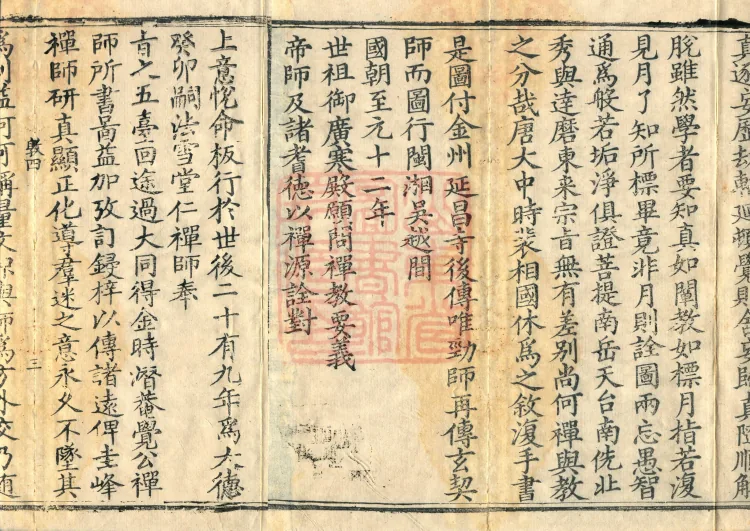 脫雖然學者要知真如闡教如標月指若復
見月了知所標畢竟非月則詮圖兩忘愚智
通為般若垢淨俱證菩提南岳天台南侁北
秀與達磨東来宗旨無有差別尚何禪與教
之分哉唐大中時裴相國休為之敘復手書
是圖付金州延昌寺後傳唯勁師再傳玄契
師而圖行閩湘吳越間
國朝至元十二年
世祖御廣寒殿顧問禪教要義
帝師及諸耆德以禪源詮對
上意悅命板行於世後二十有九年為大德
癸卯嗣法雪堂仁禪師奉
旨六五臺回途過大同得金時潛菴覺公禪
師所書啚益加攷訂鋟梓以傳諸遠俾圭峰
禪師研真顯正化導羣迷之意永久不墜其
三